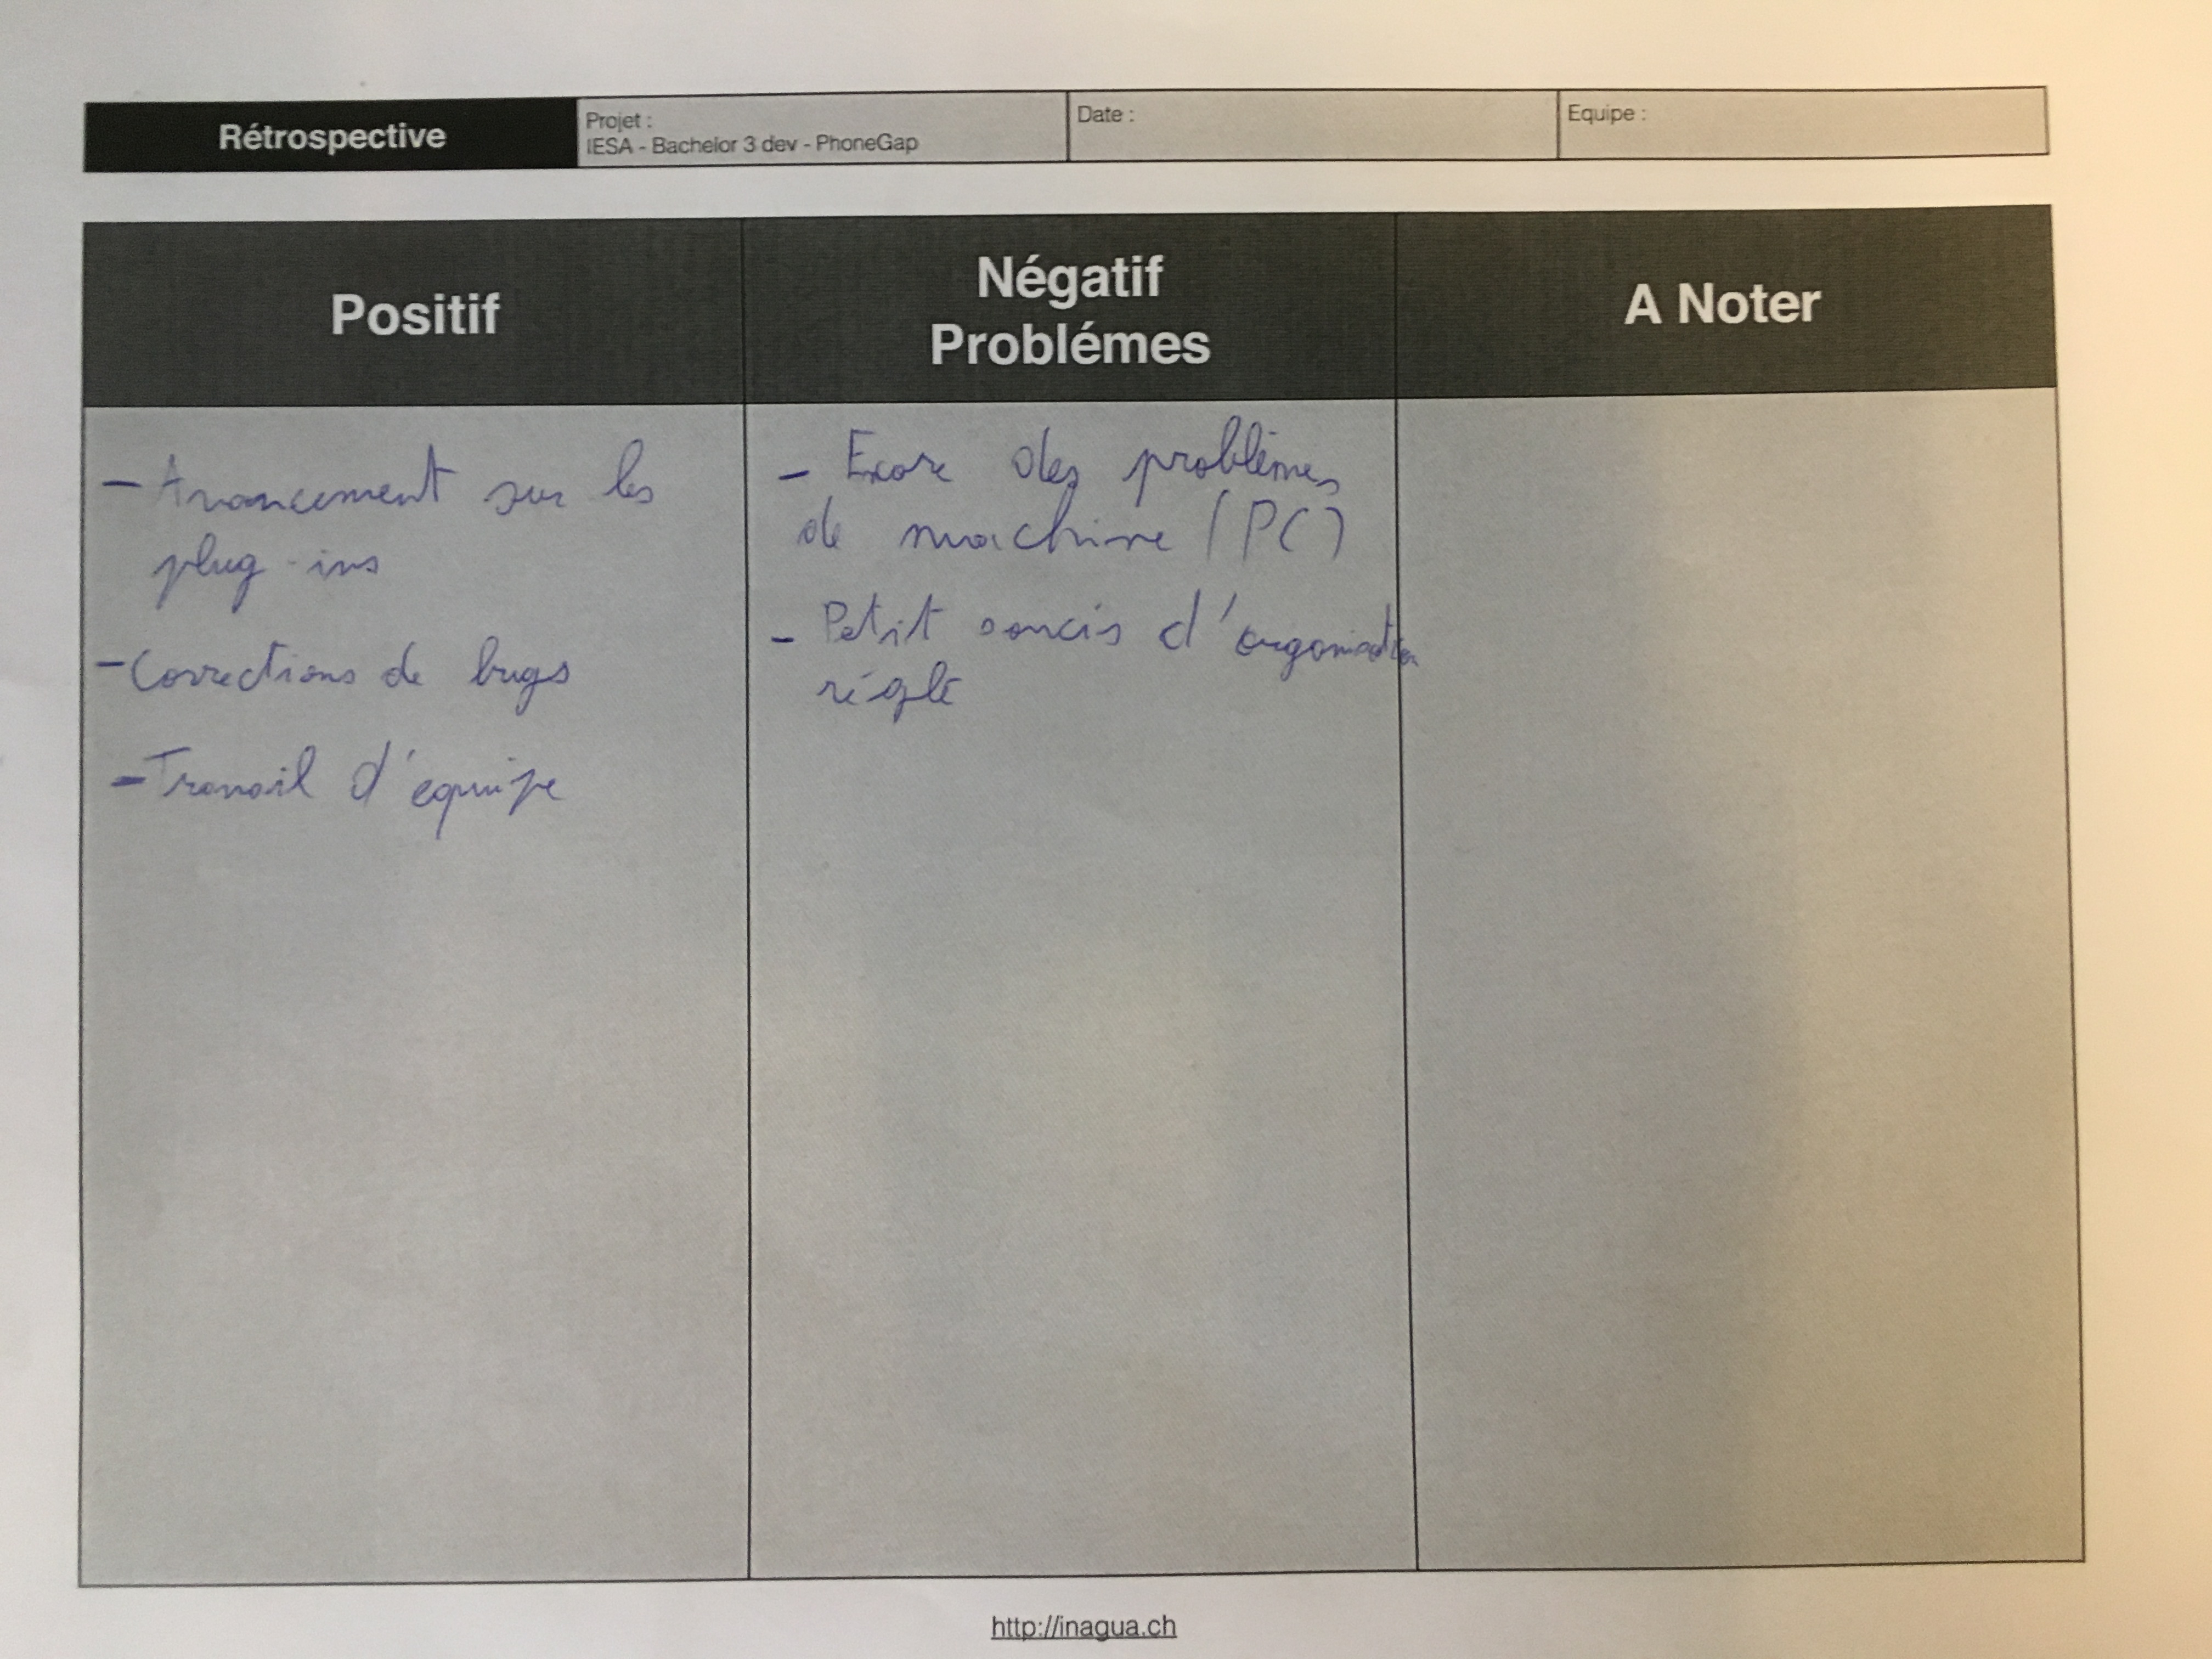 Rétrospective
Projet :
IESA - Bachelor 3 dev - PhoneGap
Date :
Equipe :
Positif
Négatif
Problémes
A Noter
- Avancement sur les
plug-ins
- Corrections de bugs
- Travail d'equipe
- Encore des problèmes
de machine (PC)
- Petit soucis d'organisation
réglé
http://inagua.ch